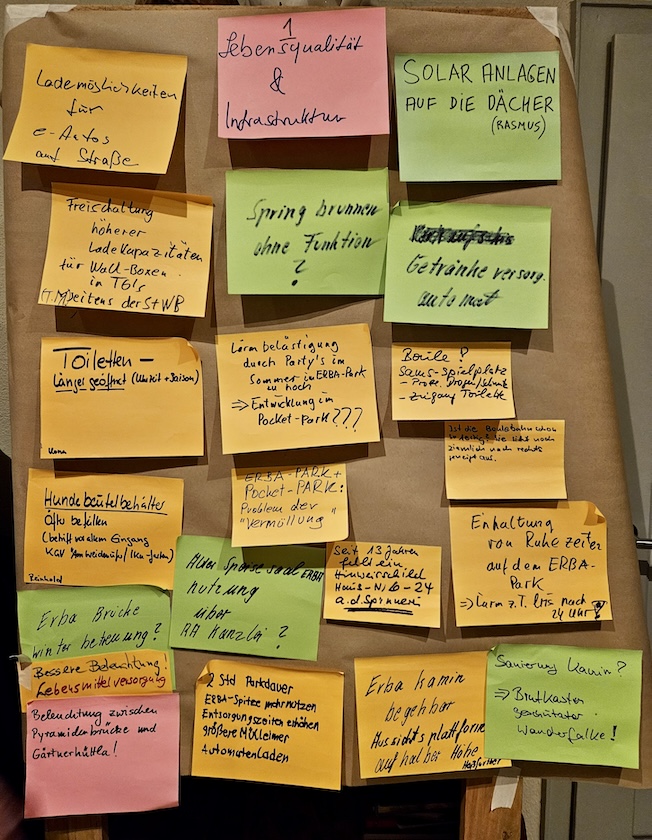 1
Lebensqualität
&
Infrastruktur
Lademöglichkeiten
für
e-Autos
auf Straße
SOLAR ANLAGEN
AUF DIE DÄCHER
(RASMUS)
Freischaltung
höherer
Ladekapazitäten
für Wall-Boxen
in TG's
(T.M) seitens der StWB
Spring brunnen
ohne Funktion
?
Getränke versorg.
automat
Toiletten –
länger geöffnet (Uhrzeit + Saison)
Lärm belästigung
durch Party's im
Sommer in ERBA-Park
zu hoch
⇒ Entwicklung im
Pocket-Park???
Boule?
Sams-Spielplatz
- Zugang Toilette
Ist die Boulebahn schon
fertig? Sie sieht noch
ziemlich nach rechts
geneigt aus.
Hundebeutelbehälter
Öfter befüllen
Reinhold
ERBA-PARK +
Pocket-PARK:
Problem der
"Vermüllung"
Erhaltung
von Ruhezeiten
auf dem ERBA-
Park
⇒ Lärm z.T. bis nach
24 Uhr!
Alter Speisesaal ERBA
nutzung
über
RA Kanzlei?
Seit 13 Jahren
fehlt ein
Hinweisschild
Haus-Nr. 6-24
a.d. Spinnerei
Erba Brücke
winter betreuung?
Bessere Beleuchtung!
Lebensmittelversorgung
Beleuchtung zwischen
Pyramidenbrücke und
Gärtnerhüttla!
2 Std Parkdauer
ERBA-Spitze mehr nutzen
Entsorgungszeiten erhöhen
größere Mülleimer
Automatenladen
Erba Kamin
begehbar
Aussichtsplattform
auf halber Höhe
Sanierung Kamin?
⇒ Brutkasten
geschützter
Wanderfalke!